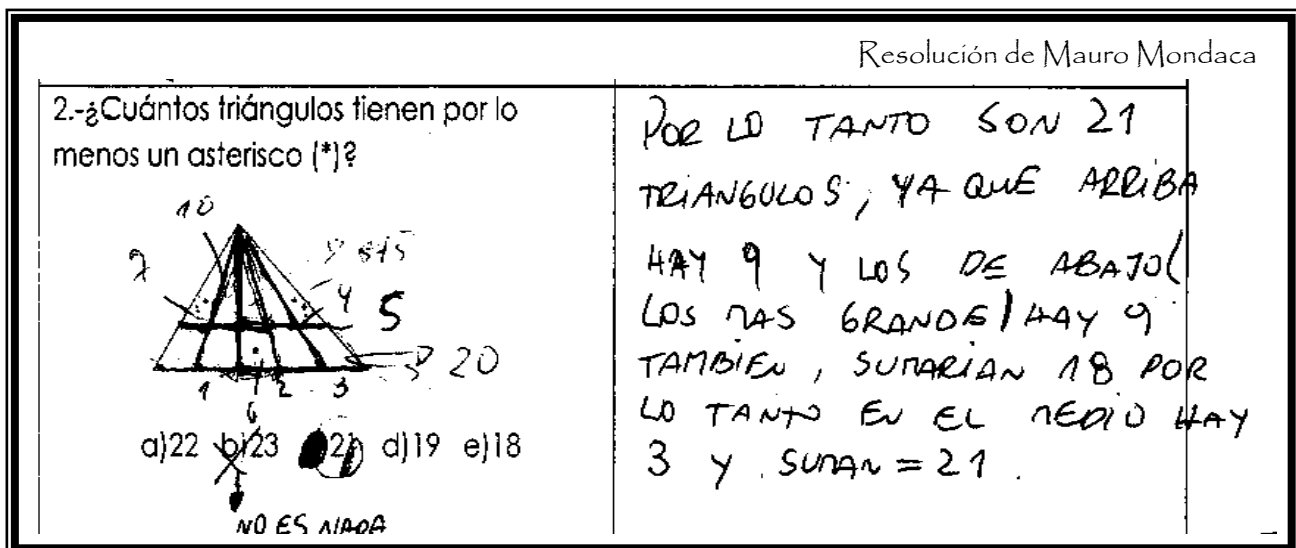 Resolución de Mauro Mondaca
2.-¿Cuántos triángulos tienen por lo
menos un asterisco (*)?
10
7
4
5
20
1 2 3
6
a)22 b)23 21 d)19 e)18
NO ES NADA
POR LO TANTO SON 21
TRIANGULOS, YA QUE ARRIBA
HAY 9 Y LOS DE ABAJO(
LOS MAS GRANDE) HAY 9
TAMBIEN, SUMARIAN 18 POR
LO TANTO EN EL MEDIO HAY
3 Y SUMAN = 21.